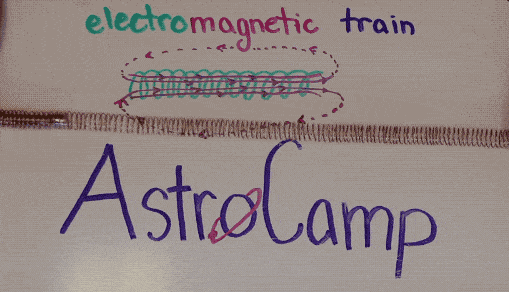 electromagnetic train
AstroCamp